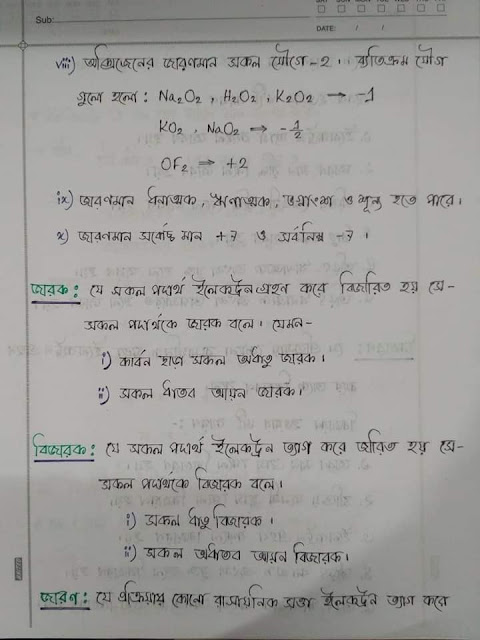 Sub:
DATE: / /
viii) অক্সিজেনের জারণমান সকল যৌগে -2 । ব্যতিক্রম যৌগ
গুলো হলো : Na₂O₂, H₂O₂, K₂O₂ → -1
KO₂, NaO₂ ⇒ -1/2
OF₂ ⇒ +2
ix) জারণমান ধনাত্মক, ঋণাত্মক, ভগ্নাংশ ও শূন্য হতে পারে।
x) জারণমান সর্বোচ্চ মান +7 ও সর্বনিম্ন -7 ।
জারক : যে সকল পদার্থ ইলেকট্রন গ্রহণ করে বিজারিত হয় সে-
সকল পদার্থকে জারক বলে। যেমন-
i) কার্বন ছাড়া সকল অধাতু জারক।
ii) সকল ধাতব আয়ন জারক।
বিজারক : যে সকল পদার্থ ইলেকট্রন ত্যাগ করে জারিত হয় সে-
সকল পদার্থকে বিজারক বলে।
i) সকল ধাতু বিজারক।
ii) সকল অধাতব আয়ন বিজারক।
জারণ : যে প্রক্রিয়ায় কোনো রাসায়নিক সত্তা ইলেকট্রন ত্যাগ করে